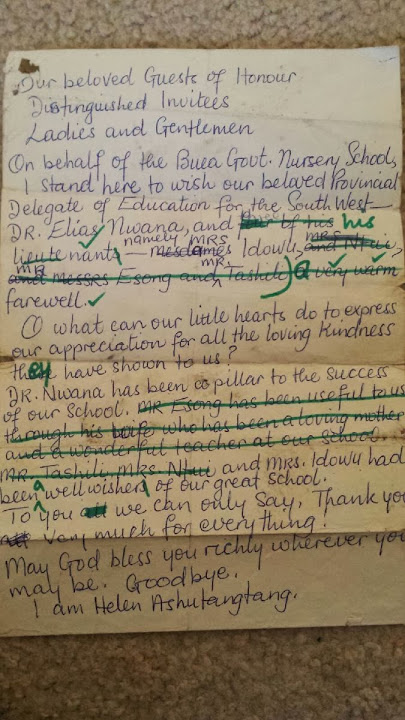 Our beloved Guests of Honour
Distinguished Invitees
Ladies and Gentlemen
On behalf of the Buea Govt. Nursery Schools,
I stand here to wish our beloved Provincial
Delegate of Education for the South West
DR. Elias Nwana, and four of his his
namely MRS MRS
lieutenants — mesdames Idowu, and Nfui,
MR MR.
and messrs Esong and Tashili) a very warm
farewell.
O what can our little hearts do to express
our appreciation for all the loving kindness
they have shown to us?
DR. Nwana has been a pillar to the success
of our school. MR Esong has been useful to us
through his wife who has been a loving mother
and a wonderful teacher at our school.
MR. Tashili, mrs. Nfui and MRS. Idowu had
been a well wishers of our great school.
To you all we can only say, Thank you
very much for everything!
May God bless you richly wherever you
may be. Goodbye.
I am Helen Ashutangtang.